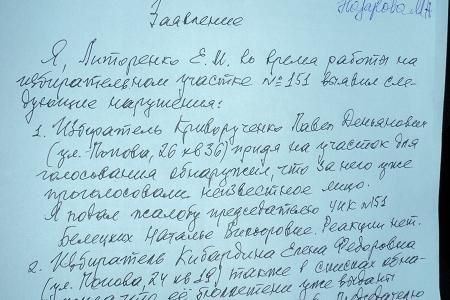 Назарова МА
Заявление
Я, Литоренко Е.И. во время работы на
избирательном участке №151 выявил сле-
дующие нарушения:
1. Избиратель Криворученко Павел Демьянович
(ул. Попова, 26 кв 36) придя на участок для
голосования обнаружил, что за него уже
проголосовали неизвестное лицо.
Я подал жалобу председателю УИК №151
Белецких Наталье Викторовне. Реакции нет.
2. Избиратель Кибардина Елена Федоровна
(ул. Попова, 24 кв 19) также в списках обна-
что её бюллетени уже выданы
председателю